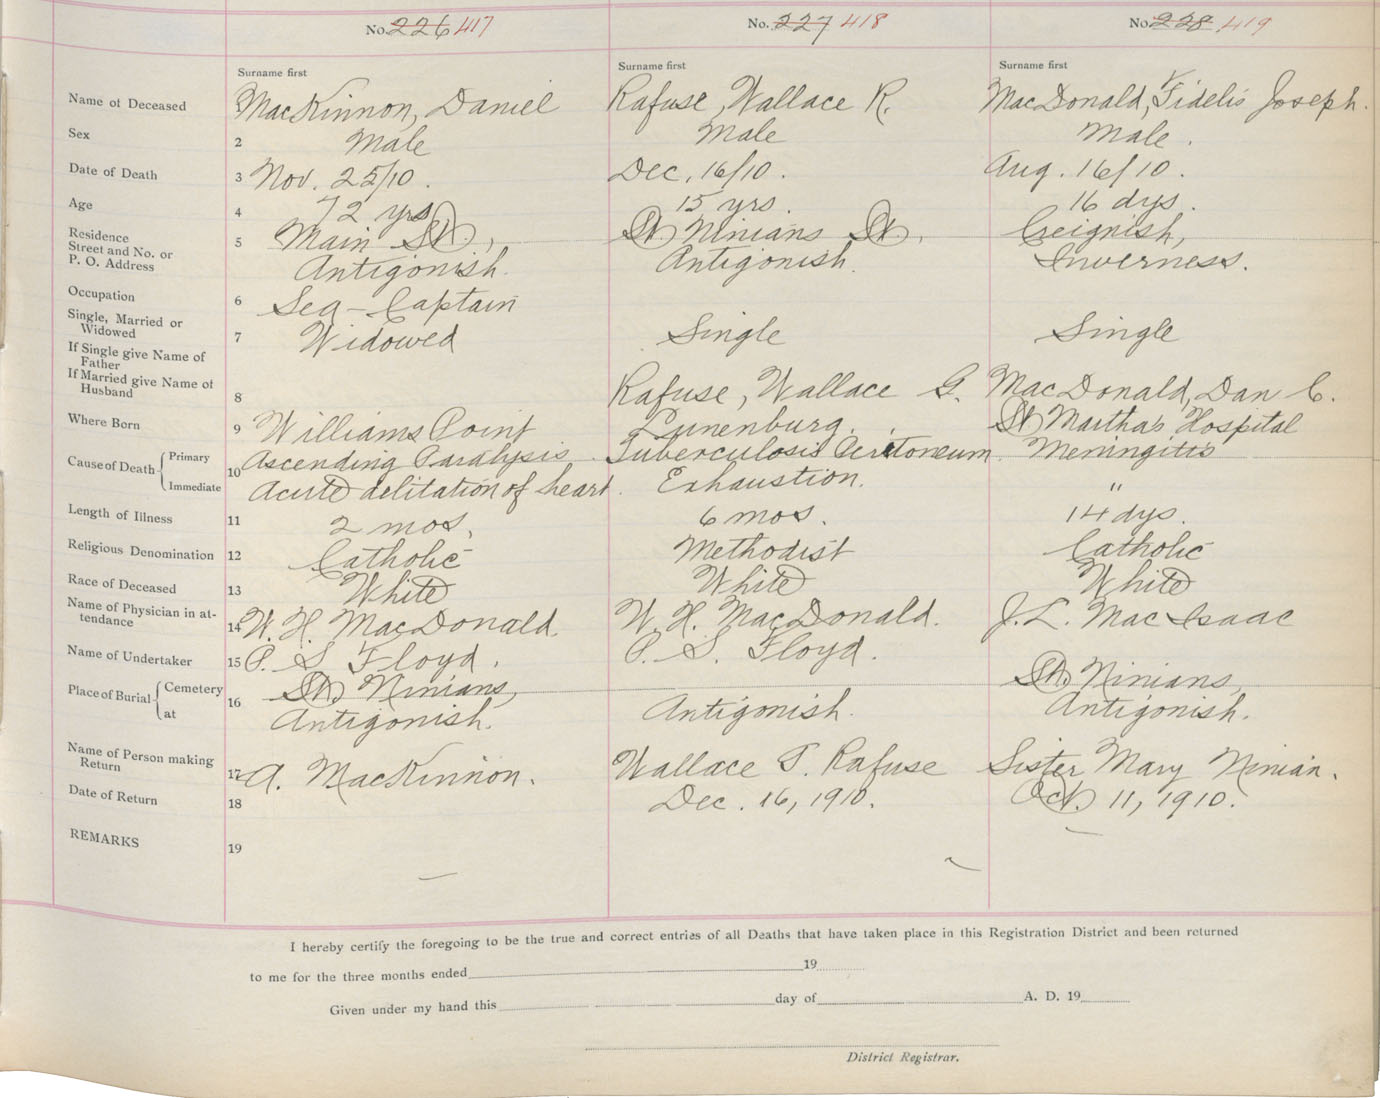 No. 226 417 No. 227 418 No. 228 419
Surname first Surname first Surname first
Name of Deceased MacKinnon, Daniel Rafuse, Wallace R. MacDonald, Fidelis Joseph.
Sex 2 Male Male Male.
Date of Death 3 Nov. 25/10. Dec, 16/10. Aug. 16/10.
Age 4 72 yrs 15 yrs. 16 dys.
Residence
Street and No. or 5 Main St, St Ninians St., Creignish,
P. O. Address Antigonish. Antigonish. Inverness.
Occupation 6 Sea-Captain
Single, Married or
Widowed 7 Widowed Single Single
If Single give Name of
Father
If Married give Name of
Husband 8 Rafuse, Wallace G. MacDonald, Dan C.
Where Born 9 Williams Point Lunenburg. St Martha's Hospital
Cause of Death Primary 10 Ascending Paralysis Tuberculosis Peritoneum Meningitis
Immediate Acute delitation of heart. Exhaustion. "
Length of Illness 11 2 mos, 6 mos. 14 dys.
Religious Denomination 12 Catholic Methodist Catholic
Race of Deceased 13 White White White
Name of Physician in at-
tendance 14 W. H. MacDonald. W. H. MacDonald. J. L. MacIsaac
Name of Undertaker 15 P. S. Floyd. P. S. Floyd.
Place of Burial Cemetery 16 St. Ninians, St. Ninians,
at Antigonish. Antigonish. Antigonish.
Name of Person making
Return 17 A. MacKinnon. Wallace T. Rafuse Sister Mary Ninian.
Date of Return 18 Dec. 16, 1910. Oct. 11, 1910.
REMARKS 19
I hereby certify the foregoing to be the true and correct entries of all Deaths that have taken place in this Registration District and been returned
to me for the three months ended 19
Given under my hand this day of A. D. 19
District Registrar.